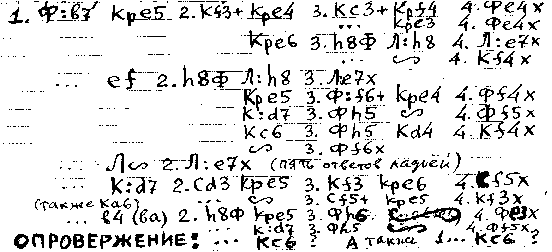 1. Ф:b7 Kpe5 2. Kf3+ Kpe4 3. Kc3+ Kpf4 4. Фe4x
... Kpe3 4. Фe4x
Kpe6 3. h8Ф Л:h8 4. Л:e7x
... ∽ 4. Kf4x
... ef 2. h8Ф Л:h8 3. Лe7x
Kpe5 3. Ф:f6+ Kpe4 4. Фf4x
K:d7 3. Фh5 ∽ 4. Фf5x
Kc6 3. Фh5 Kd4 4. Kf4x
∽ 3. Фf6x
... Л∽ 2. Л:e7x (пять ответов ладьей)
... K:d7 2. Cd3 Kpe5 3. Kf3 Kpe6 4. Cf5x
(также Ka6) ... ∽ 3. Cf5+ Kpe5 4. Kf3x
... b4 (ba) 2. h8Ф Kpe5 3. Фh6 4. Фe3x
... K:d7 3. Фh5 ∽ 4. Фf5x
ОПРОВЕРЖЕНИЕ: ... Kc6 ? А также 1... Kc6 ?